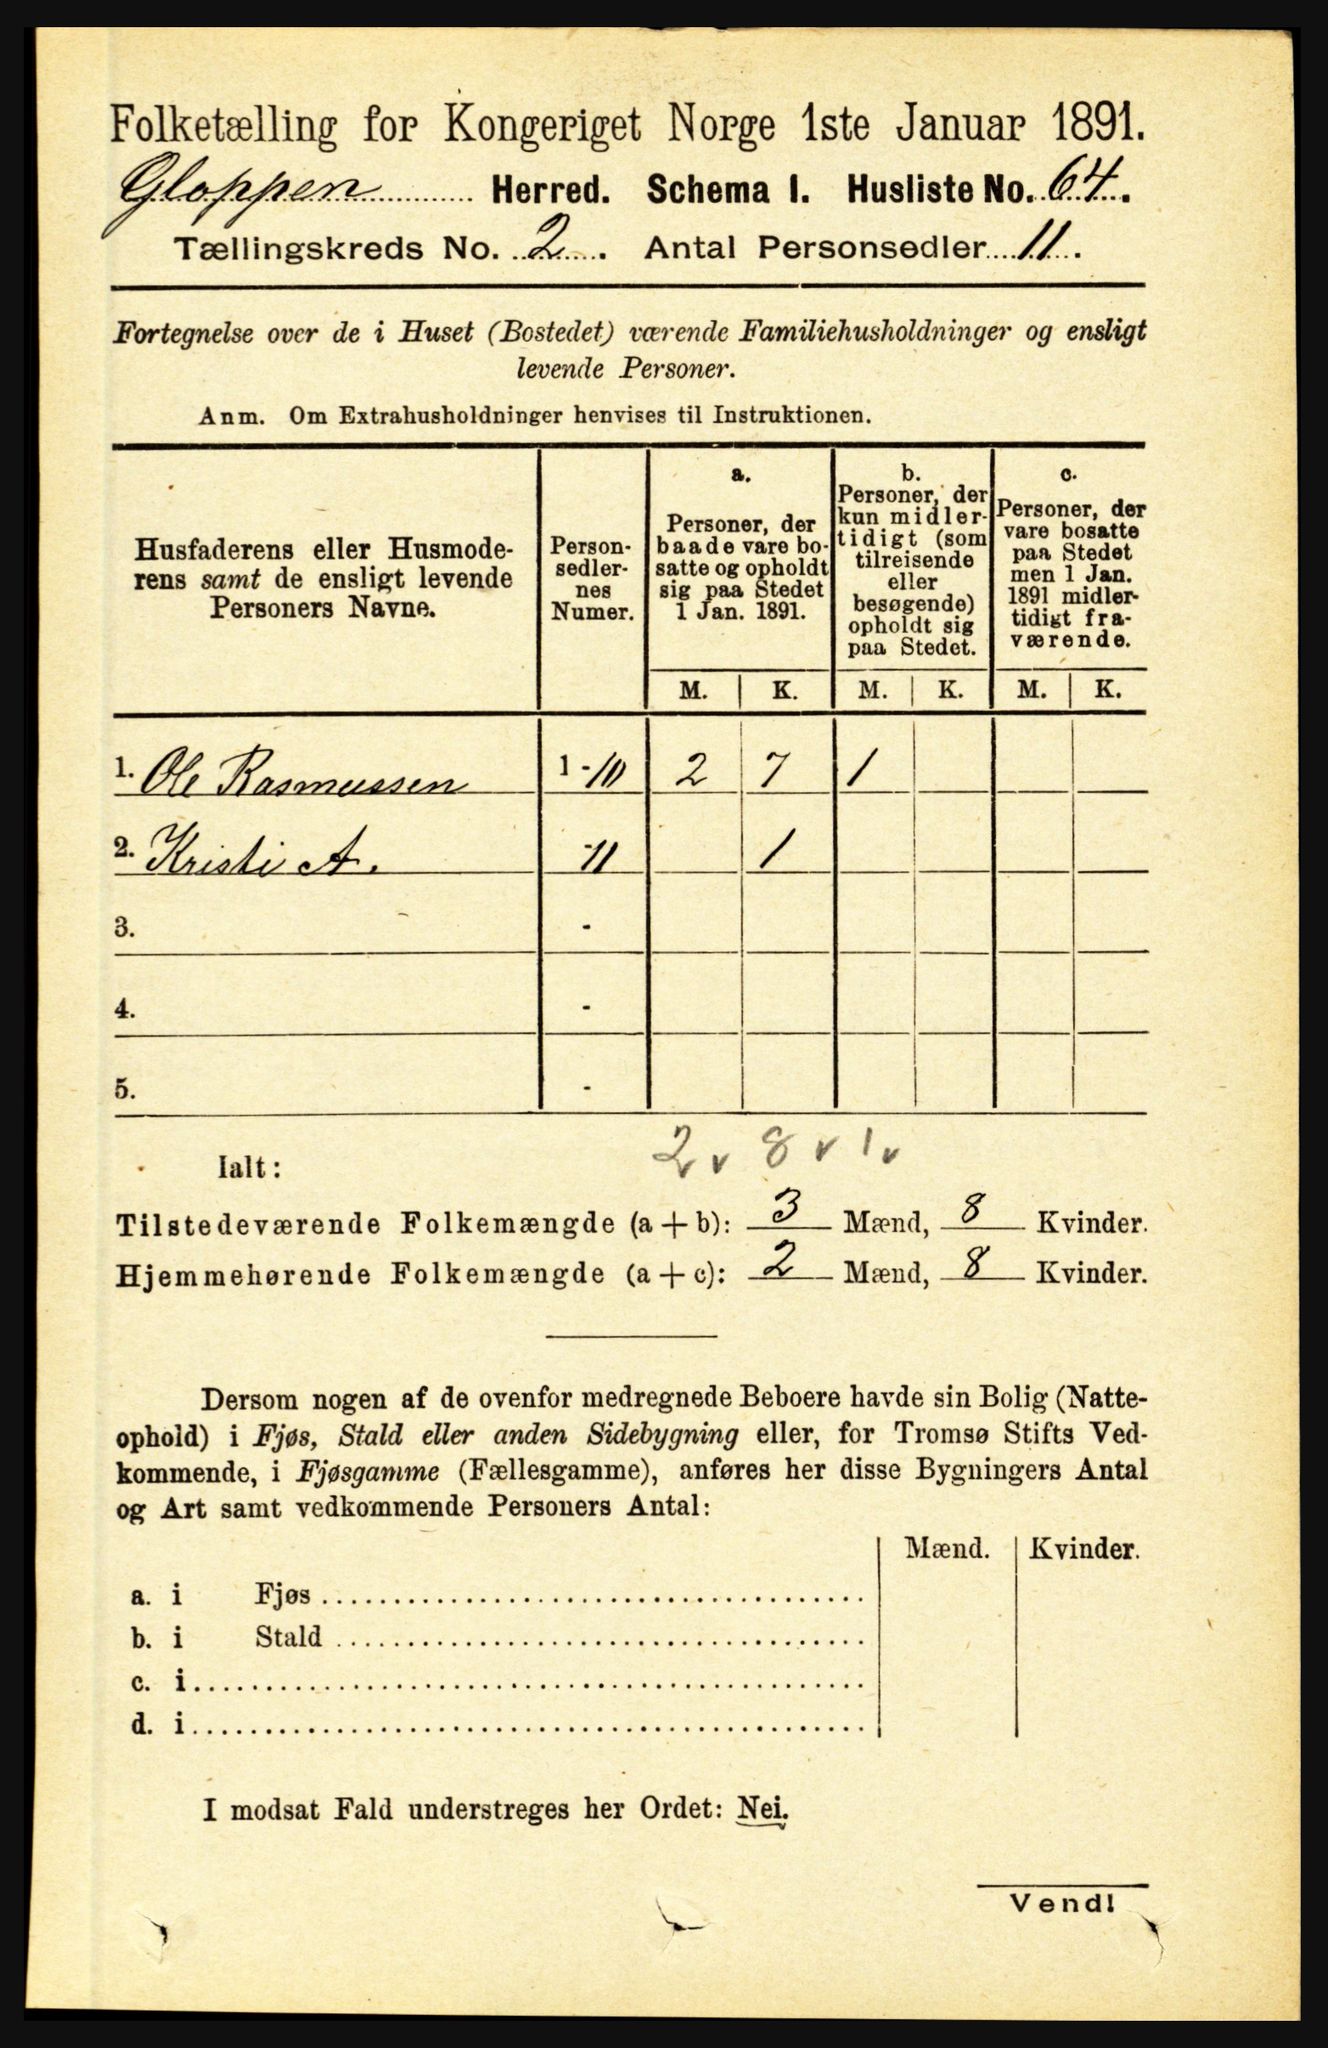 Folketælling for Kongeriget Norge 1ste Januar 1891.
Gloppen Herred. Schema I. Husliste No. 64.
Tællingskreds No. 2. Antal Personsedler 11.
Fortegnelse over de i Huset (Bostedet) værende Familiehusholdninger og ensligt
levende Personer.
Anm. Om Extrahusholdninger henvises til Instruktionen.
Husfaderens eller Husmode-
rens samt de ensligt levende
Personers Navne.
Person-
sedler-
nes
Numer.
a.
Personer, der
baade vare bo-
satte og opholdt
sig paa Stedet
1 Jan. 1891.
b.
Personer, der
kun midler-
tidigt (som
tilreisende
eller
besøgende)
opholdt sig
paa Stedet.
c.
Personer, der
vare bosatte
paa Stedet
men 1 Jan.
1891 midler-
tidigt fra-
værende.
M. K. M. K. M. K.
1. Ole Rasmussen 1-10 2 7 1
2. Kristi A. -11 1
3. -
4. -
5. -
2 v 8 v 1 v
Ialt:
Tilstedeværende Folkemængde (a + b): 3 Mænd, 8 Kvinder.
Hjemmehørende Folkemængde (a + c): 2 Mænd, 8 Kvinder.
Dersom nogen af de ovenfor medregnede Beboere havde sin Bolig (Natte-
ophold) i Fjøs, Stald eller anden Sidebygning eller, for Tromsø Stifts Ved-
kommende, i Fjøsgamme (Fællesgamme), anføres her disse Bygningers Antal
og Art samt vedkommende Personers Antal:
Mænd. Kvinder.
a. i Fjøs
b. i Stald
c. i
d. i
I modsat Fald understreges her Ordet: Nei.
Vend!